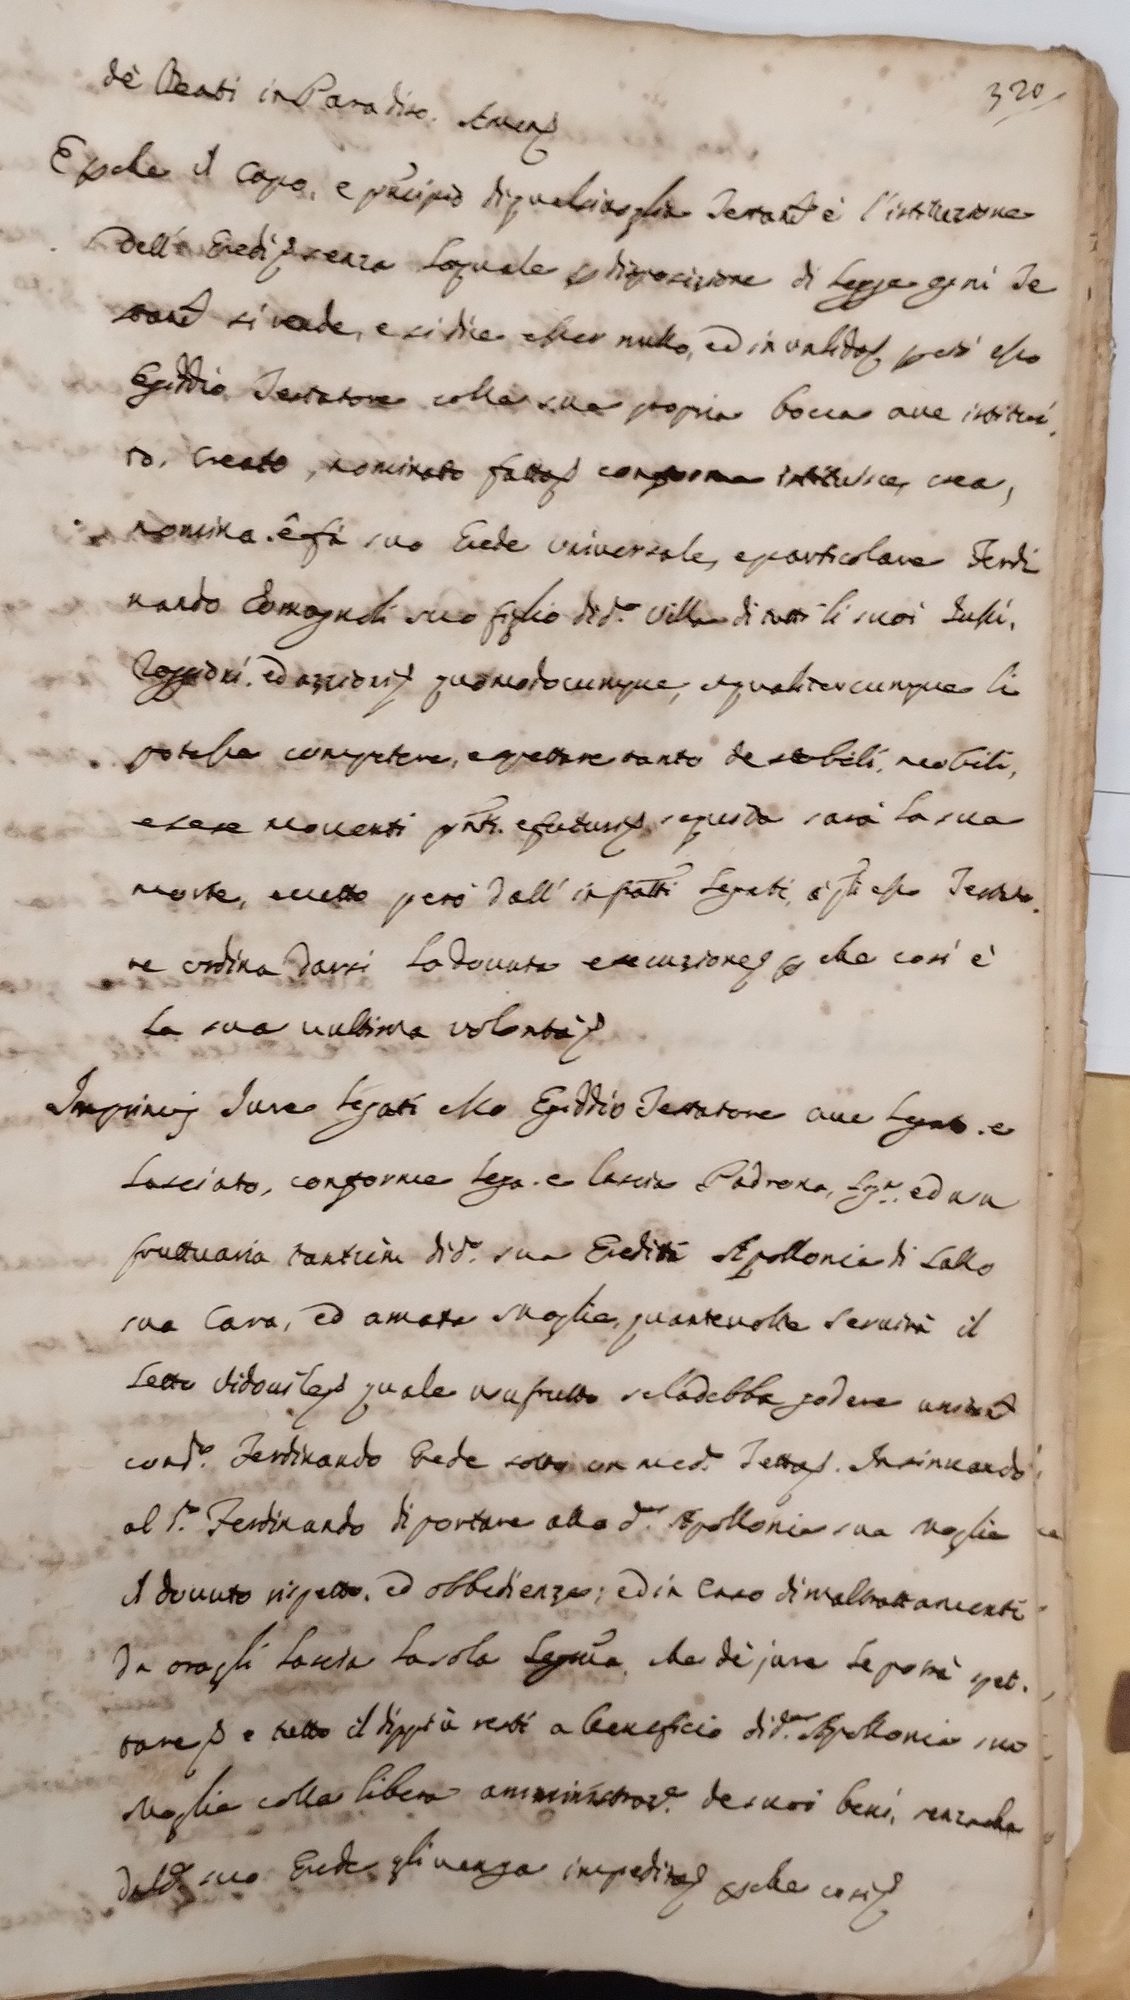 320
dè Beati in Paradiso. Amen
E perche il Capo, e prīcipio di qualsivoglia Testamt è l'istituzione
dell'Erede senza laquale p disposizione di Legge ogni Te
stamt si rende, e si dice esser nullo, ed invalido però esso
Egiddio Testatore colla sua propria bocca ave istitui
to, creato, nominato fatto conforme istituisce, crea,
nomina, e fà suo Erede universale, e particolare Ferdi
nando Romagnoli suo figlio di dª Villa di tutti li suoi Jussi,
Raggioni, ed azzioni quomodocumque, e qualitercumque li
potesse competere, e spettare tanto de stabili, mobili,
e sese moventi pnti, e futuri seguita sarà la sua
morte, eccetto però dall'infratti Legati, à qti esso Testato
re ordina darsi la dovuta esecuzione p che così è
la sua ultima volontà
Inprimis Jure Legati esso Egiddio Testatore ave Legato, e
Lasciato, conforme Lega, e lascia Padrona, Sigra, ed usu
fruttuaria tantum di dª sua Eredità Apollonia di Lallo
sua Cara, ed amata Moglie, quantevolte servirà il
Letto Vidovile quale usufrutto se la debba godere unitamt
con dº Ferdinando Erede sotto un medº Tetto. Insinuando
al dº Ferdinando di portare alla dª Apollonia sua Moglie
il dovuto rispetto, ed obbedienza; ed in Caso di maltrattamenti
da ora gli Lascia la sola Legma, che dè jure le potrà spet
tare e tutto il dippiù resti a beneficio di dª Apollonia sua
Moglie colla libera amministraze de suoi beni, senza che
dal dº suo Erede gli venga impedito perche così